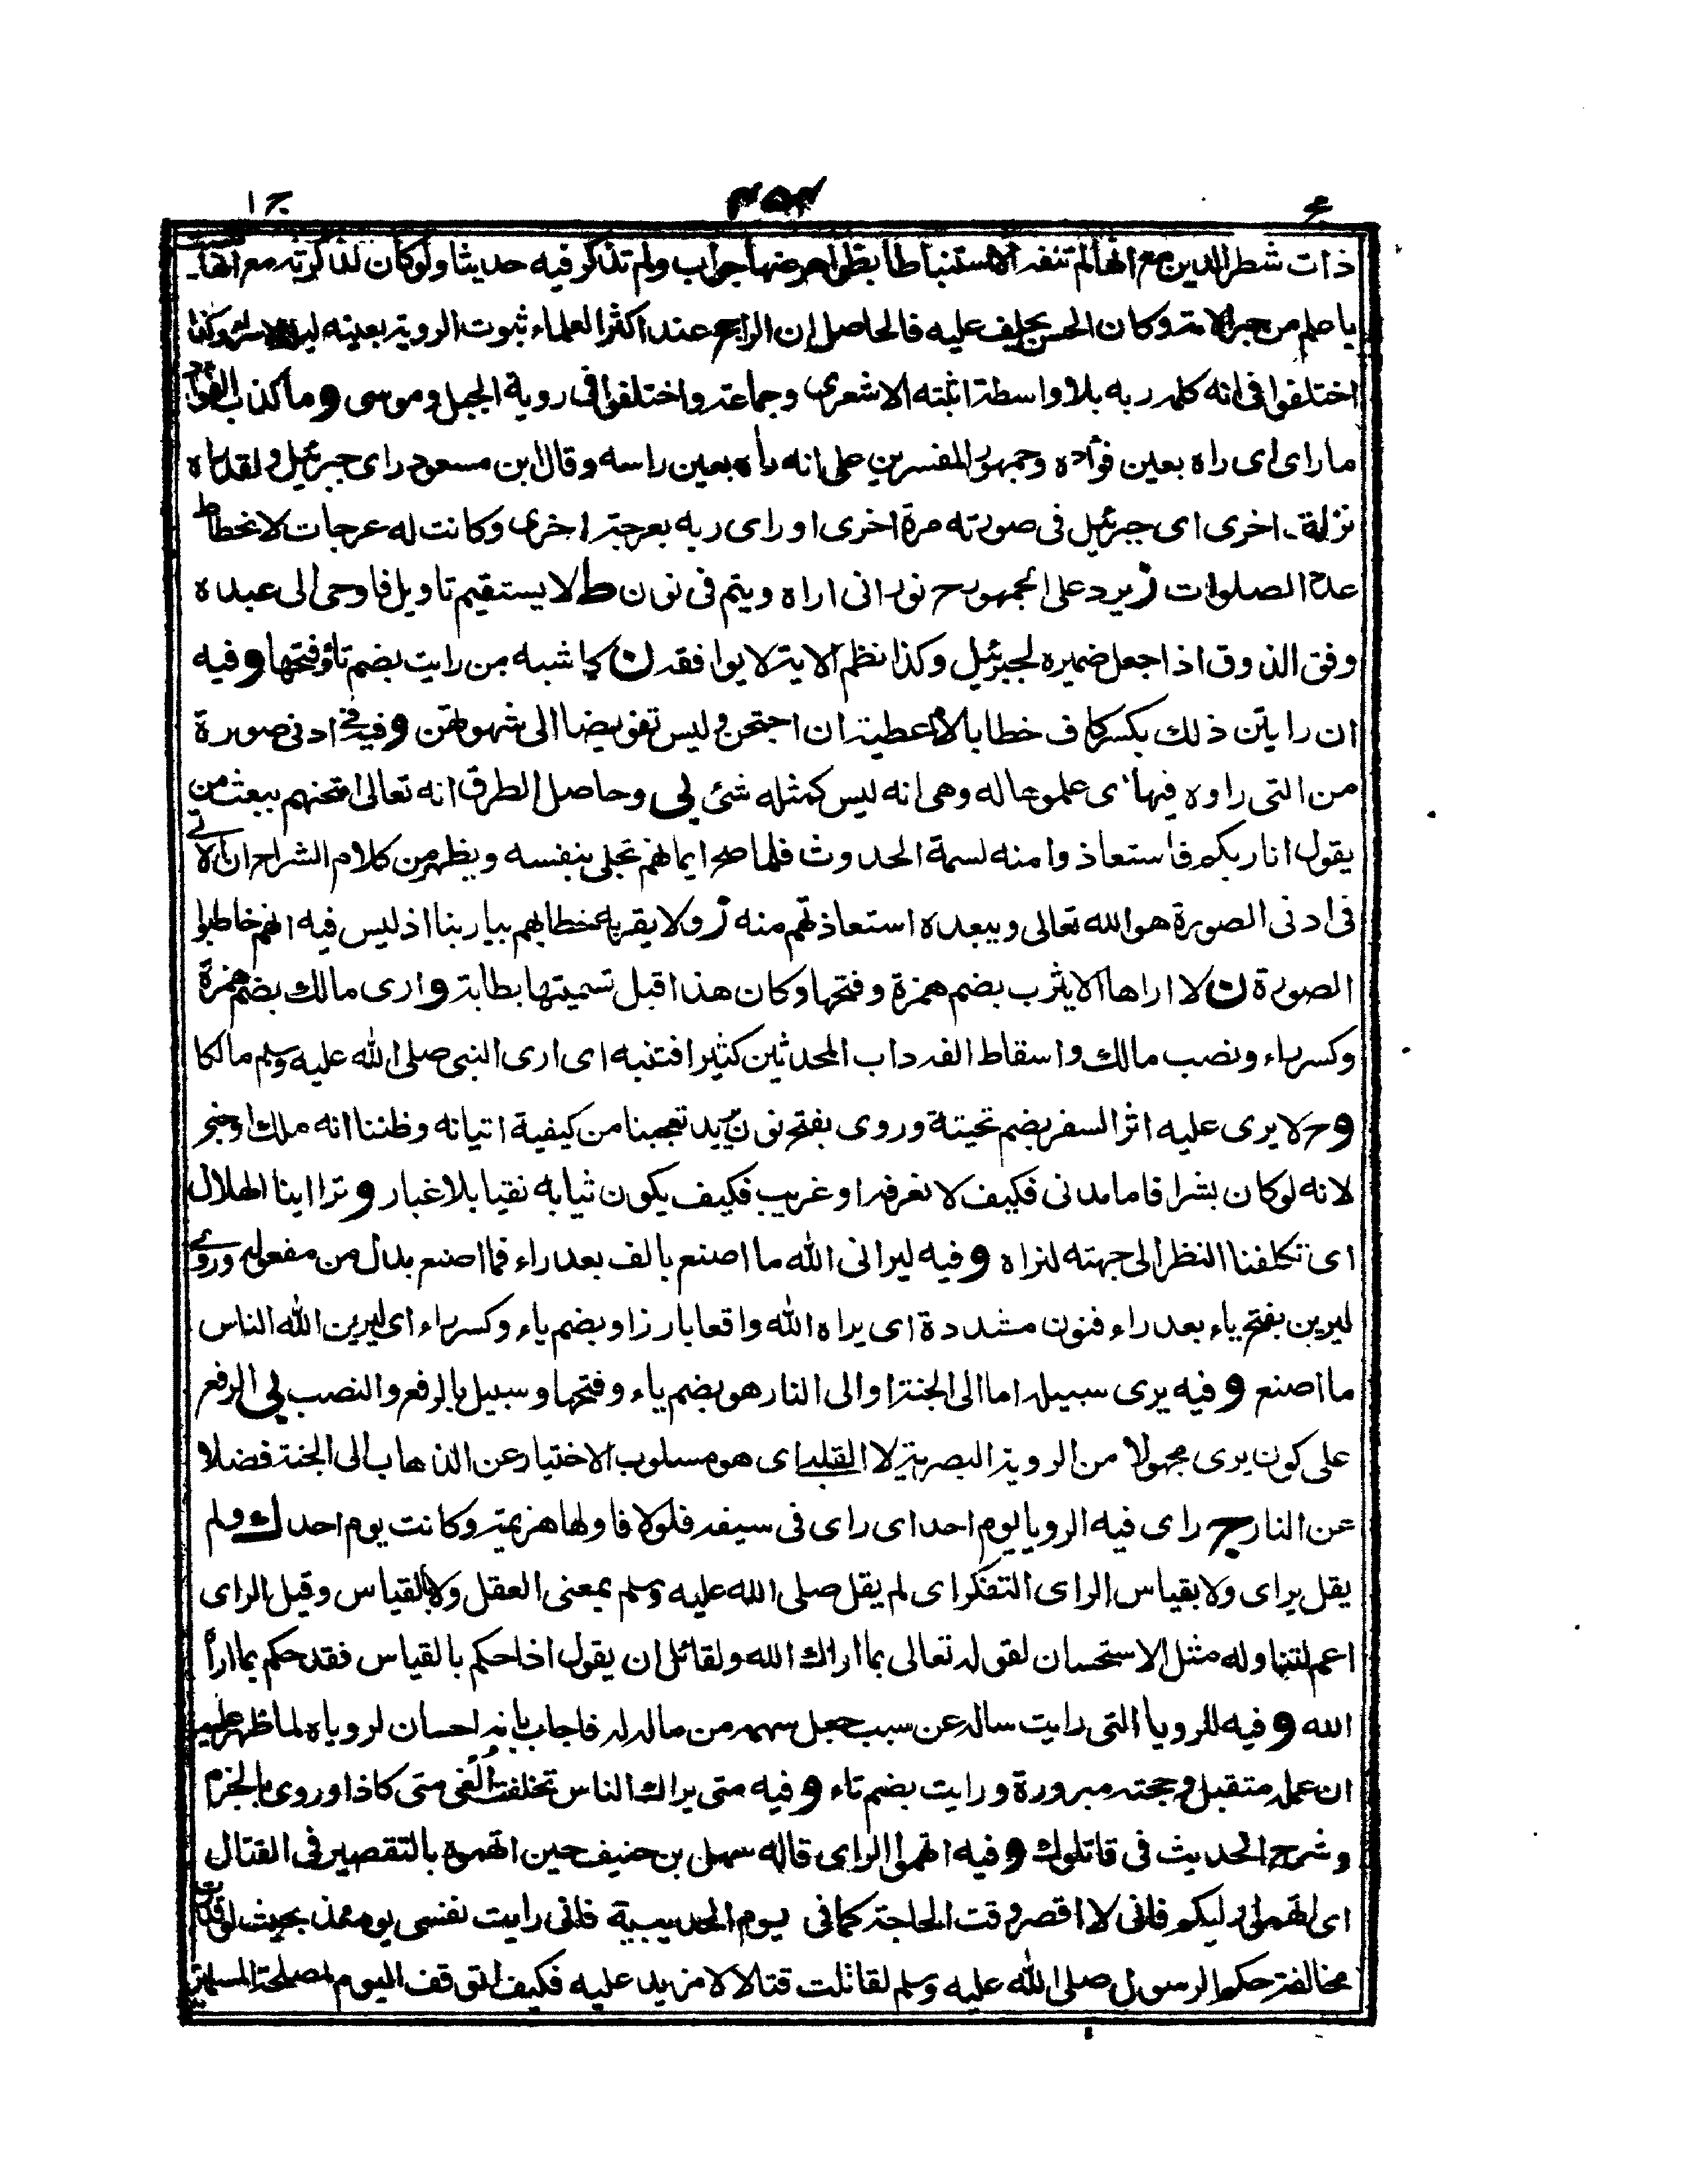 ج ١
٤٥٣
ع
ذات شطر الدين مع انها لم تنفه الا استنباطا بظواهر عنها جواب ولم تذكر فيه حديثا ولو كان لذكرته مع انها ليست
باعلم من حبر الامة وكان الحسن يحلف عليه فالحاصل ان الراجح عند اكثر العلماء ثبوت الروية بعينه ليلة الاسراء وكذا
اختلفوا في انه كلمه ربه بلا واسطة اثبته الاشعرى وجماعة واختلفوا في روية الجبل وموسى و ما كذب الفؤاد
ما راى اى راه بعين فؤاده وجمهور المفسرين على انه راه بعين راسه وقال ابن مسعود راى جبرئيل و لقد راه
نزلة اخرى اى جبرئيل في صورته مرة اخرى او راى ربه بعرجة اخرى وكانت له عرجات لانحطاط
عدة الصلوات ز يرد على الجمهور ح نورانى اراه ويتم في نون ط لا يستقيم تاويل فاوحى الى عبده
وفق الذوق اذا جعل ضميره لجبرئيل وكذا نظم الاية لا يوافقه ن كما شبه من رايت بضم تاء وفتحها و فيه
ان رايتن ذلك بكسر كاف خطابا لام عطية ان احتجن وليس تفويضا الى شهوتهن و فيه في ادنى صورة
من التى راوه فيها اى علموها له وهى انه ليس كمثله شئ لى وحاصل الطرق انه تعالى امتحنهم ببعث من
يقول انا ربكم فاستعاذوا منه لسمة الحدوث فلما صح ايمانهم تجلى بنفسه ويظهر من كلام الشراح ان الاتى
في ادنى الصورة هو الله تعالى ويبعده استعاذتهم منه ز ولا يقربه خطابهم بيا ربنا اذ ليس فيه انهم خاطبوا
الصورة ن لا اراها الا يثرب بضم همزة وفتحها وكان هذا قبل تسميتها بطابة و ارى مالك بضم همزة
وكسر راء ونصب مالك واسقاط الفه داب المحدثين كثيرا فتنبه اى ارى النبى صلى الله عليه وسلم مالكا
و ح لا يرى عليه اثر السفر بضم تحيتة وروى بفتح نون يريد تعجبنا من كيفية اتيانه وظننا انه ملك او جنى
لانه لو كان بشرا فاما مدنى فكيف لا نعرفه او غريب فكيف يكون ثيابه نقيا بلا غبار و تراا ينا الهلال
اى تكلفنا النظر الى جهته لنراه و فيه ليرانى الله ما اصنع بالف بعد راء فما اصنع بدل من مفعوله وروى
ليرين بفتح ياء بعد راء فنون مشددة اى يراه الله واقعا بارزا وبضم ياء وكسر راء اى ليرين الله الناس
ما اصنع و فيه يرى سبيله اما الى الجنة او الى النار هو بضم ياء وفتحها وسبيل بالرفع والنصب لى الرفع
على كون يرى مجهولا من الروية البصرية لا القلبية اى هو مسلوب الاختيار عن الذهاب الى الجنة فضلا
عن النار ج راى فيه الرويا يوم احد اى راى في سيفه فلولا فاولها هزيمة وكانت يوم احد ك و لم
يقل براى ولا بقياس الراى التفكر اى لم يقل صلى الله عليه وسلم بمعنى العقل ولا بالقياس وقيل الراى
اعم لتناوله مثل الاستحسان لقوله تعالى بما اراك الله ولقائل ان يقول اذا حكم بالقياس فقد حكم بما اراه
الله و فيه للرويا التى رايت ساله عن سبب جعل سهمه من ماله له فاجاب بانه احسان لروياه لما ظهر عليه
ان عمله متقبل وحجته مبرورة ورايت بضم تاء و فيه متى يراك الناس تخلفت الغى متى كاذا وروى بالجزم
وشرح الحديث في قاتلوك و فيه اتهموا الراى قاله سهل بن حنيف حين اتهموه بالتقصير في القتال
اى اتهموا رايكم فانى لا اقصر وقت الحاجة كما في يوم الحديبية فانى رايت نفسى يومئذ بحيث لو قدرت
مخالفة حكم الرسول صلى الله عليه وسلم لقاتلت قتالا لا مزيد عليه فكيف اتوقف اليوم لمصلحة المسلمين